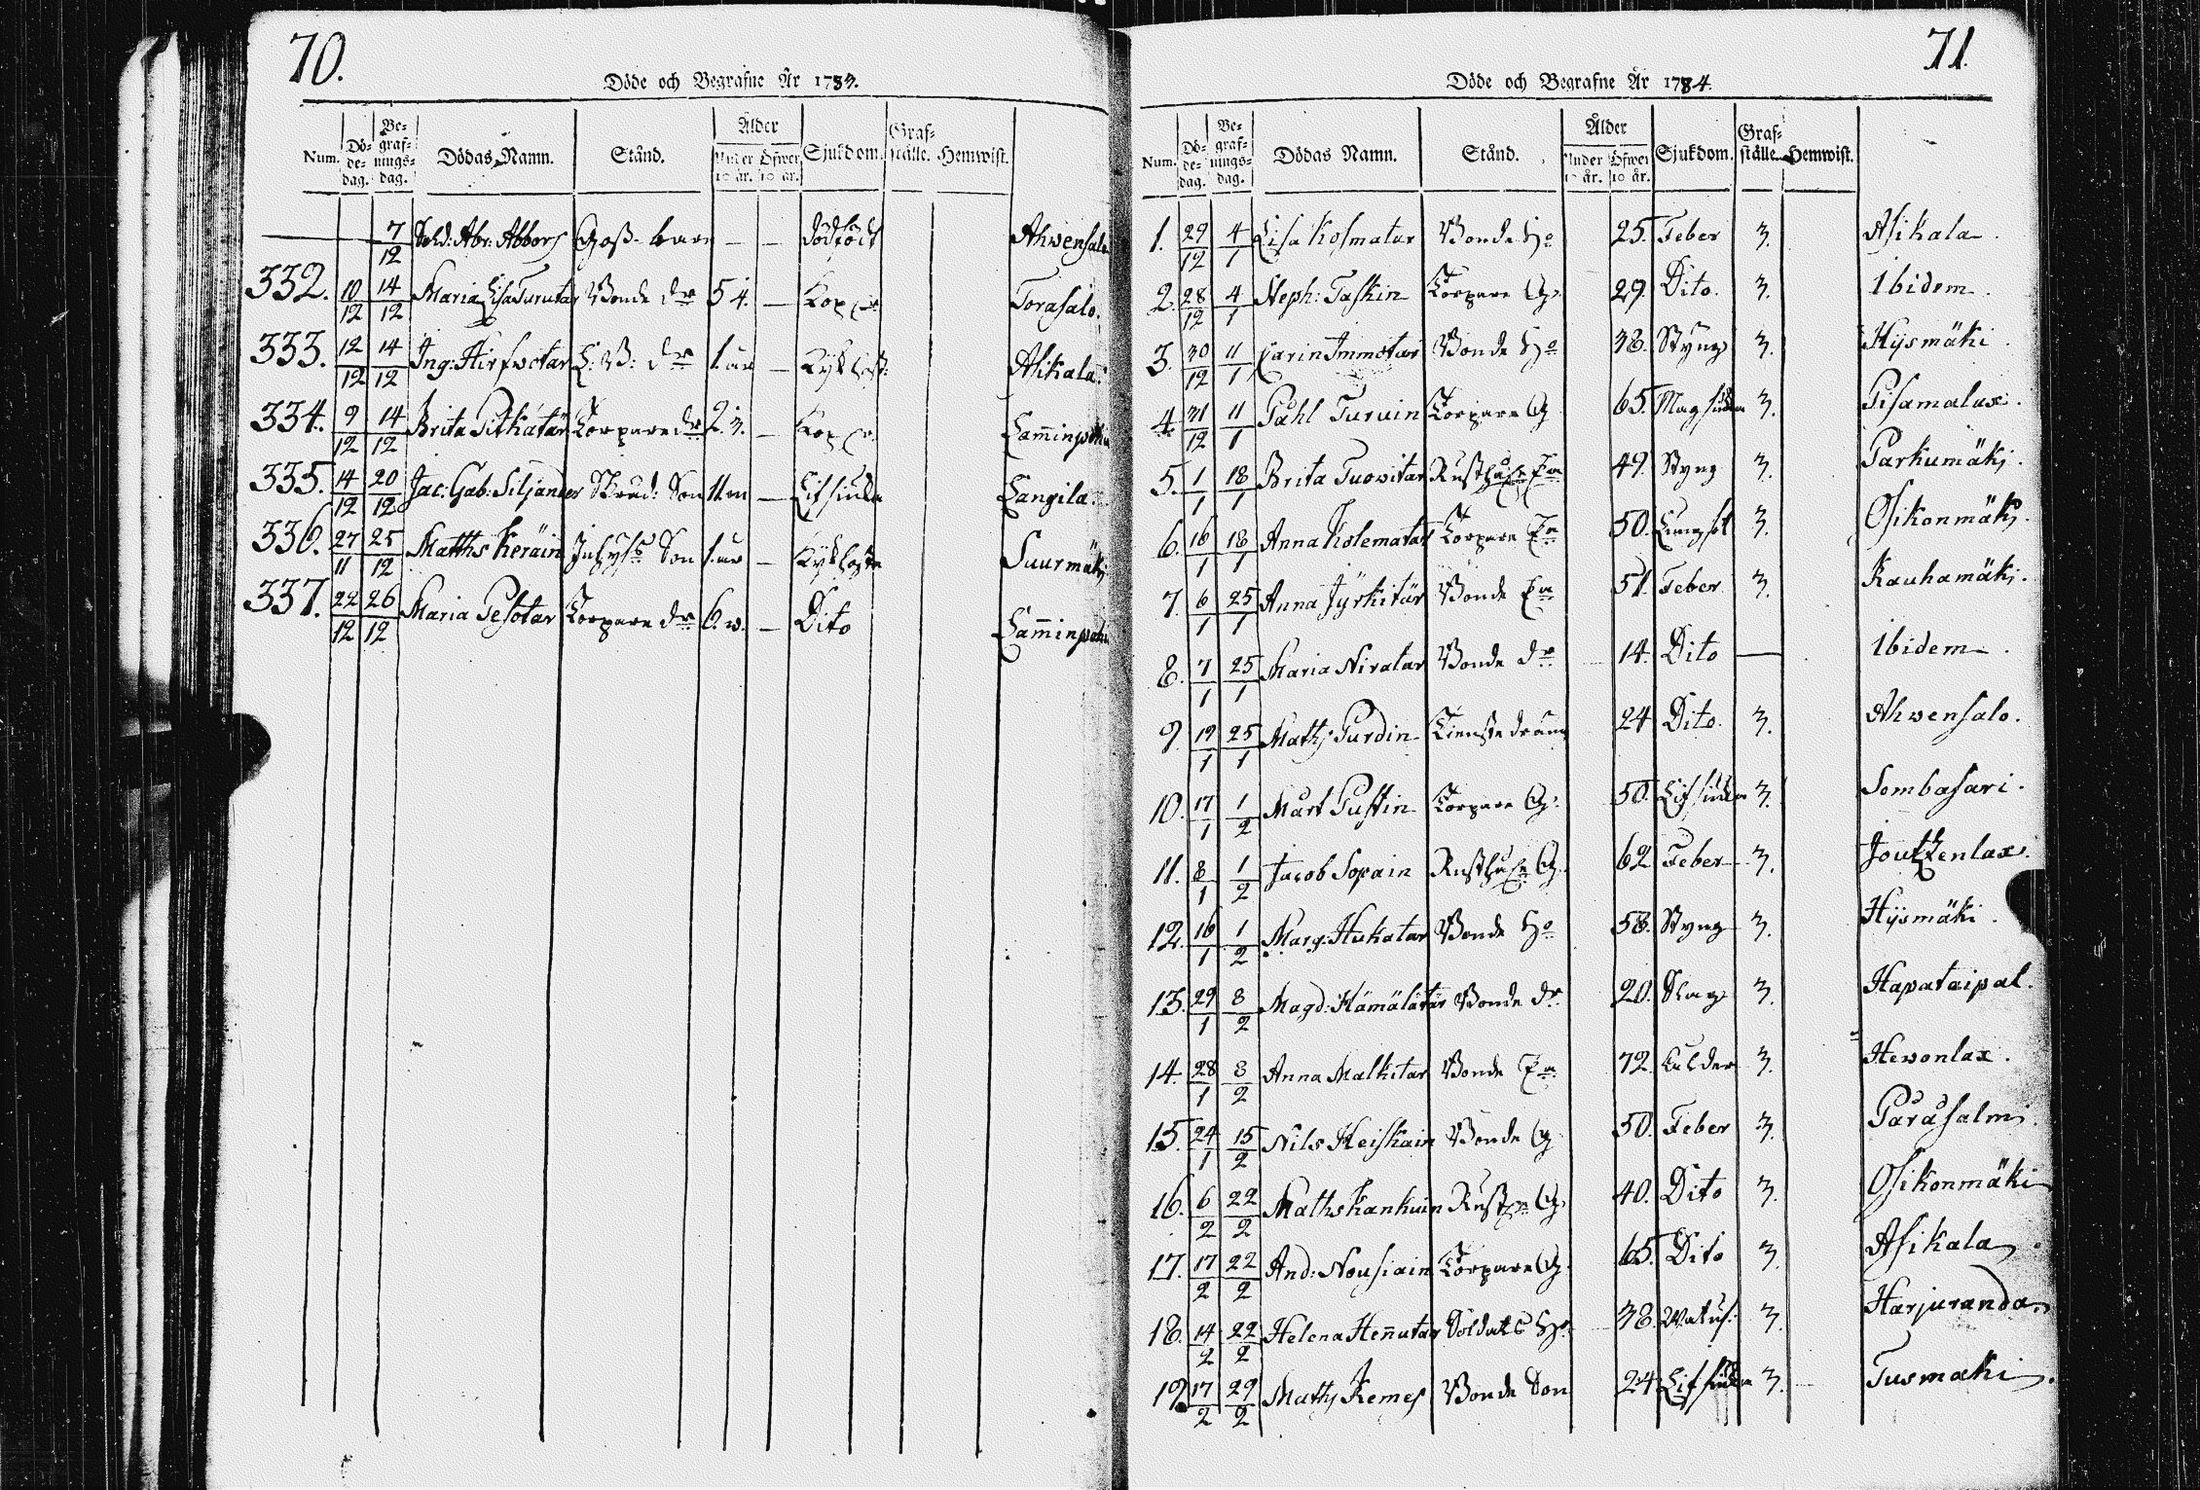 70.
Döde och Begrafne År 1783.
Num. Dödedag. Begrafningsdag. Dödas Namn. Stånd. Ålder Under 10 år. Öfwer 10 år. Sjukdom. Grafställe. Hemwist.
— 7/12 Sold: Abr: Abbors Goss-barn — — dödfödt Ahwensalo
332. 10/12 14/12 Maria Lisa Turutar Bonde dr 5 4. — Kopp: Torasalo.
333. 12/12 14/12 Ing: Hirfwotar dr 1. — Kykhost: Asikala.
334. 9/12 14/12 Brita Pitkätär Torpare dr 2. 3. — Kopp:
335. 14/12 20/12 Jac: Gab: Siljander Son 11 m — Lifsiuka Langila.
336. 27/11 25/12 Matths Keräin Inhys Son 1. — Kykhosta Suurmäki
337. 22/12 26/12 Maria Pesotar Torpare dr 6. w. — Dito
71.
Döde och Begrafne År 1784.
Num. Dödedag. Begrafningsdag. Dödas Namn. Stånd. Ålder Under 10 år. Öfwer 10 år. Sjukdom. Grafställe. Hemwist.
1. 29/12 4/1 Lisa Kosmatar Bonde Ho 25. Feber 3. Asikala.
2. 28/12 4/1 Steph: Taskin Torpare G. 29. Dito. 3. Ibidem.
3. 30/12 11/1 Carin Immotar Bonde Ho 38. Styng 3. Hysmäki.
4. 31/12 11/1 Påhl Turuin Torpare G 65. Magsiuka 3. Pisamalax.
5. 1/1 18/1 Brita Tuowitar Rusth: Ea 49. Styng 3. Parkumäki.
6. 16/1 18/1 Anna Kolematar Torpare Ea 50. Lungsot 3. Osikonmäki.
7. 6/1 25/1 Anna Jyrkitär Bonde Ea 51. Feber 3. Kauhamäki.
8. 7/1 25/1 Maria Niratar Bonde dr 14. Dito — Ibidem.
9. 19/1 25/1 Maths Purdin Tienstedräng 24 Dito. 3. Ahwensalo.
10. 17/1 1/2 Mårt Pustin Torpare G. 50. Lifsiuka 3. Sombasari.
11. 8/1 1/2 Jacob Sopain Rusth: G 62 Feber 3. Joutzenlax.
12. 16/1 1/2 Marg: Hukatar Bonde Ho 58. Styng 3. Hysmäki.
13. 29/1 8/2 Magd: Hämälätär Bonde dr 20. Slag 3. Hapataipal.
14. 28/1 8/2 Anna Malkitar Bonde Ea 72. Ålder 3. Hewonlax.
15. 24/1 15/2 Nils Heiskain Bonde G 50. Feber 3. Paråsalmi.
16. 6/2 22/2 Maths Kankuin Rusth: G. 40. Dito 3. Osikonmäki
17. 17/2 22/2 And: Nousiain Torpare G. 65. Dito 3. Asikala.
18. 14/2 22/2 Helena Hennutar Soldats Ho 38. Watus: 3. Harjuranda.
19. 17/2 29/2 Maths Kemes Bonde Son 24. Lifsiuka 3. Tusmäki.